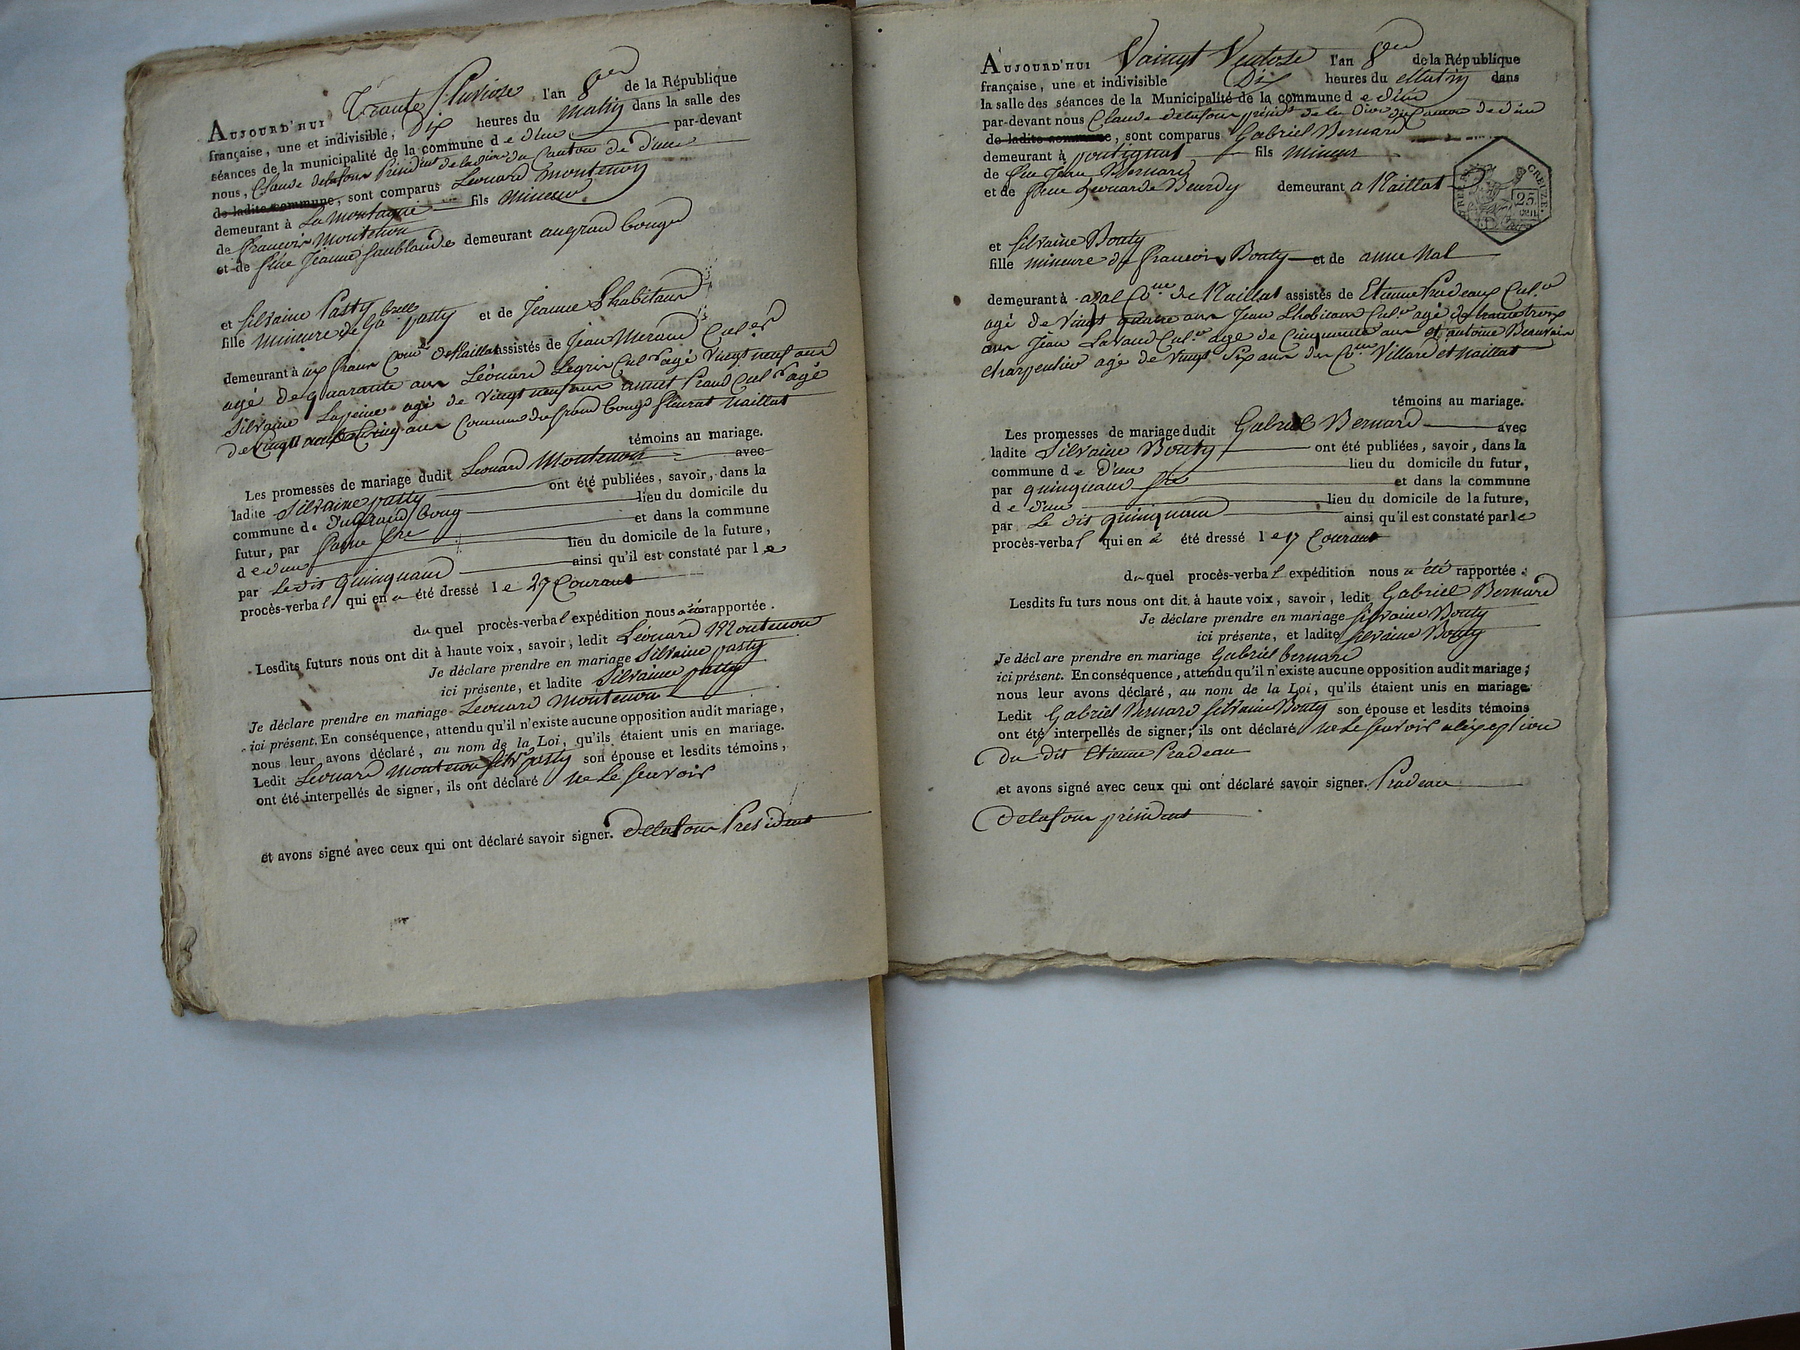 AUJOURD'HUI Trante Pluviose, l'an 8eme de la République
française, une et indivisible, Dix heures du Matin dans la salle des
séances de la municipalité de la commune de d'un par-devant
nous, Claude delafour Président de du Canton de d'un
de ladite commune, sont comparus Léonard Montenon
demeurant à La Montagne fils mineur
de François Montenon
et de feue Jeanne demeurant au grand bourg
et Silvaine Patty
fille mineure de Gabriell patty et de Jeanne Lhabitant
demeurant à Comne de Naillat assistés de Jean Meraud Culer
agé de quarante ans Léonard Legrix Culr agé vingt neuf ans
Silvaine agé de vingt neuf ans annet Culr agé
de ans Commune du grand bourg fleurat Naillat
témoins au mariage.
Les promesses de mariage dudit Léonard Montenon avec
ladite Silvaine patty ont été publiées, savoir, dans la
commune de du Grand bourg lieu du domicile du
futur, par et dans la commune
de d'un lieu de domicile de la future,
par Le dis quinquant ainsi qu'il est constaté par le
procès-verbal qui en a été dressé le 27 Courant
duquel procès-verbal expédition nous a été rapportée.
Lesdits futurs nous ont dit à haute voix, savoir, ledit Léonard Montenon
Je déclare prendre en mariage Silvaine patty
ici présente, et ladite Silvainne patty
Je déclare prendre en mariage Léonard Montenon
ici présent. En conséquence, attendu qu'il n'existe aucune opposition audit mariage,
nous leur avons déclaré, au nom de la Loi, qu'ils étaient unis en mariage.
Ledit Léonard Montenon Silv patty son épouse et lesdits témoins,
ont été interpellés de signer, ils ont déclaré ne le scavoir
et avons signé avec ceux qui ont déclaré savoir signer. Delafour Président
AUJOURD'HUI Vaingt Ventose l'an 8eme de la République
française, une et indivisible Dix heures du Matin dans
la salle des séances de la Municipalité de la commune de d'un
par-devant nous Claude delafour présidt de du Canton de d'un
de ladite commune, sont comparus Gabriel Bernard
demeurant à poutignat fils mineur
de feu Jean Bernard
et de feue Léonarde demeurant a Naillat
CREUZE
25
CEN.
et Silvaine Bouty
fille mineure de François Bouty et de anne Nal
demeurant à azal Cone de Naillat assistés de Etienne Pradeaux Culr
agé de vingt quatre ans Jean Lhabitant Culr agé de trante trois
ans Jean Lavaud Culr age de Cinquante ans et antoine Beauvais
charpentier age de vingt Six ans des Cnes Villard et Naillat
témoins au mariage.
Les promesses de mariage dudit Gabriel Bernard avec
ladite Silvaine Bouty ont été publiées, savoir, dans la
commune de d'un lieu du domicile du futur,
par quinquant et dans la commune
de d'un lieu du domicile de la future,
par Le dis quinquant ainsi qu'il est constaté par le
procès-verbal qui en a été dressé le 17 Courant
duquel procès-verbal expédition nous a été rapportée :
Lesdits futurs nous ont dit, à haute voix, savoir, ledit Gabriel Bernard
Je déclare prendre en mariage Silvaine Bouty
ici présente, et ladite Silvaine Bouty
Je déclare prendre en mariage Gabriel bernard
ici présent. En conséquence, attendu qu'il n'existe aucune opposition audit mariage ;
nous leur avons déclaré, au nom de la Loi, qu'ils étaient unis en mariage.
Ledit Gabriel Bernard Silvaine Bouty son épouse et lesdits témoins
ont été interpellés de signer ; ils ont déclaré ne le scavoir a lexception
du dit Etienne Pradeau
et avons signé avec ceux qui ont déclaré savoir signer. Pradeau
Delafour président